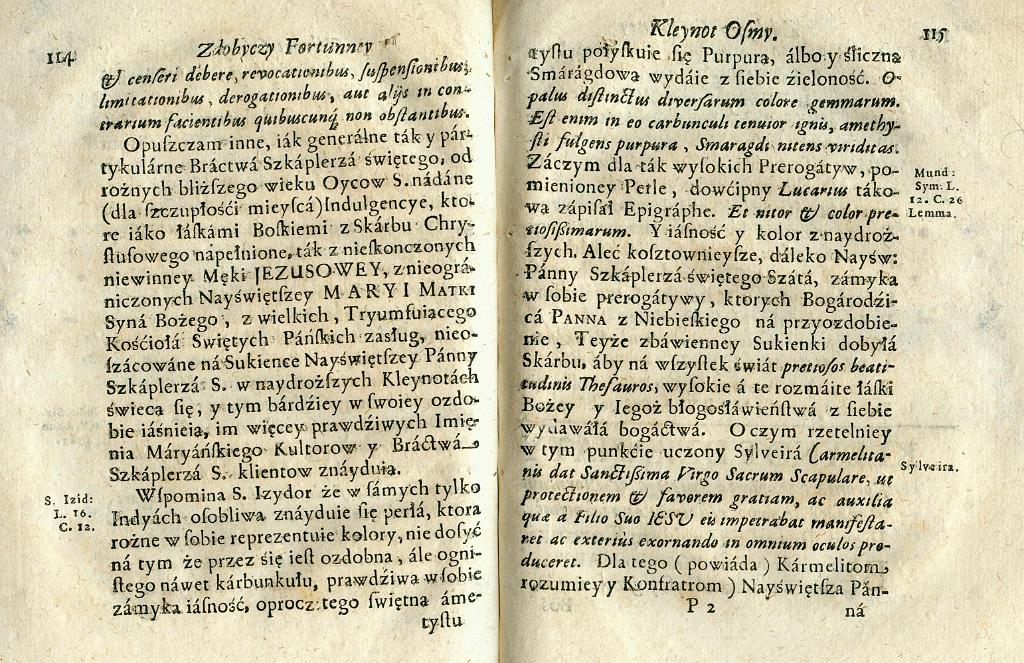 114
Zdobyczy Fortunney
& censeri debere, revocationibus, suspensionibus,
limitationibus, derogationibus, aut alijs in con-
trarium facientibus quibuscunq; non obstantibus.
Opuszczam inne, iák generálne ták y pár-
tykulárne Bráctwá Szkáplerzá świętego, od
rożnych bliższego wieku Oycow S. nádáne
(dla szczupłośći mieyscá) Indulgencye, kto-
re iáko łáskámi Boskiemi z Skárbu Chry-
stusowego nápełnione, ták z nieskonczonych
niewinney Męki JEZUSOWEY, z nieográ-
niczonych Nayświętszey MARYI MATKI
Syná Bożego, z wielkich, Tryumfuiącego
Kośćiołá Swiętych Páńskich zasług, nieo-
szácowáne ná Sukience Nayświętszey Pánny
Szkáplerzá S. w naydroższych Kleynotách
świecą się, y tym bárdźiey w swoiey ozdo-
bie iáśnieią, im więcey prawdźiwych Imię-
nia Máryáńskiego Kultorow y Bráctwá
Szkáplerzá S. klientow znáyduią.
Wspomina S. Izydor że w sámych tylko
Indyách osobliwa znáyduie się perłá, ktora
rożne w sobie reprezentuie kolory, nie dosyć
ná tym że przez się iest ozdobna, ále ogni-
stego náwet kárbunkułu, prawdźiwą w sobie
zámyka iásność, oprocz tego świetną áme-
tystu
S. Izid:
L. 16.
C. 12.
Kleynot Osmy.
115
tystu połyskuie się Purpura, álbo y śliczna
Smárágdowa wydáie z siebie źieloność. O-
palus distinctus diversarum colore gemmarum.
Est enim in eo carbunculi tenuior ignis, amethy-
sti fulgens purpura, Smaragdi nitens viriditas.
Záczym dla ták wysokich Prerogátyw, po-
mienioney Perle, dowćipny Lucarius táko-
wą zápisał Epigráphe. Et nitor & color pre-
tiosissimarum. Y iásność y kolor z naydroż-
szych. Aleć kosztownieysze, dáleko Nayśw:
Pánny Szkáplerzá świętego Szátá, zámyka
w sobie prerogátywy, ktorych Bogárodźi-
cá PANNA z Niebieskiego ná przyozdobie-
nie, Teyże zbáwienney Sukienki dobyłá
Skárbu, áby ná wszystek świát pretiosos beati-
tudinis Thesauros, wysokie á te rozmáite łáski
Bożey y Iegoż błogosłáwieństwá z siebie
wydawáłá bogáctwá. O czym rzetelniey
w tym punkćie uczony Sylveirá Carmelita-
nis dat Sanctissima Virgo Sacrum Scapulare, ut
protectionem & favorem gratiam, ac auxilia
quæ a Filio Suo IESV eis impetrabat manifesta-
ret ac exterius exornando in omnium oculos pro-
duceret. Dla tego (powiáda) Kármelitom
rozumiey y Konfratrom) Nayświętsza Pán-
P 2
ná
Mund:
Sym: L.
12. C. 26
Lemma.
Sylveira.